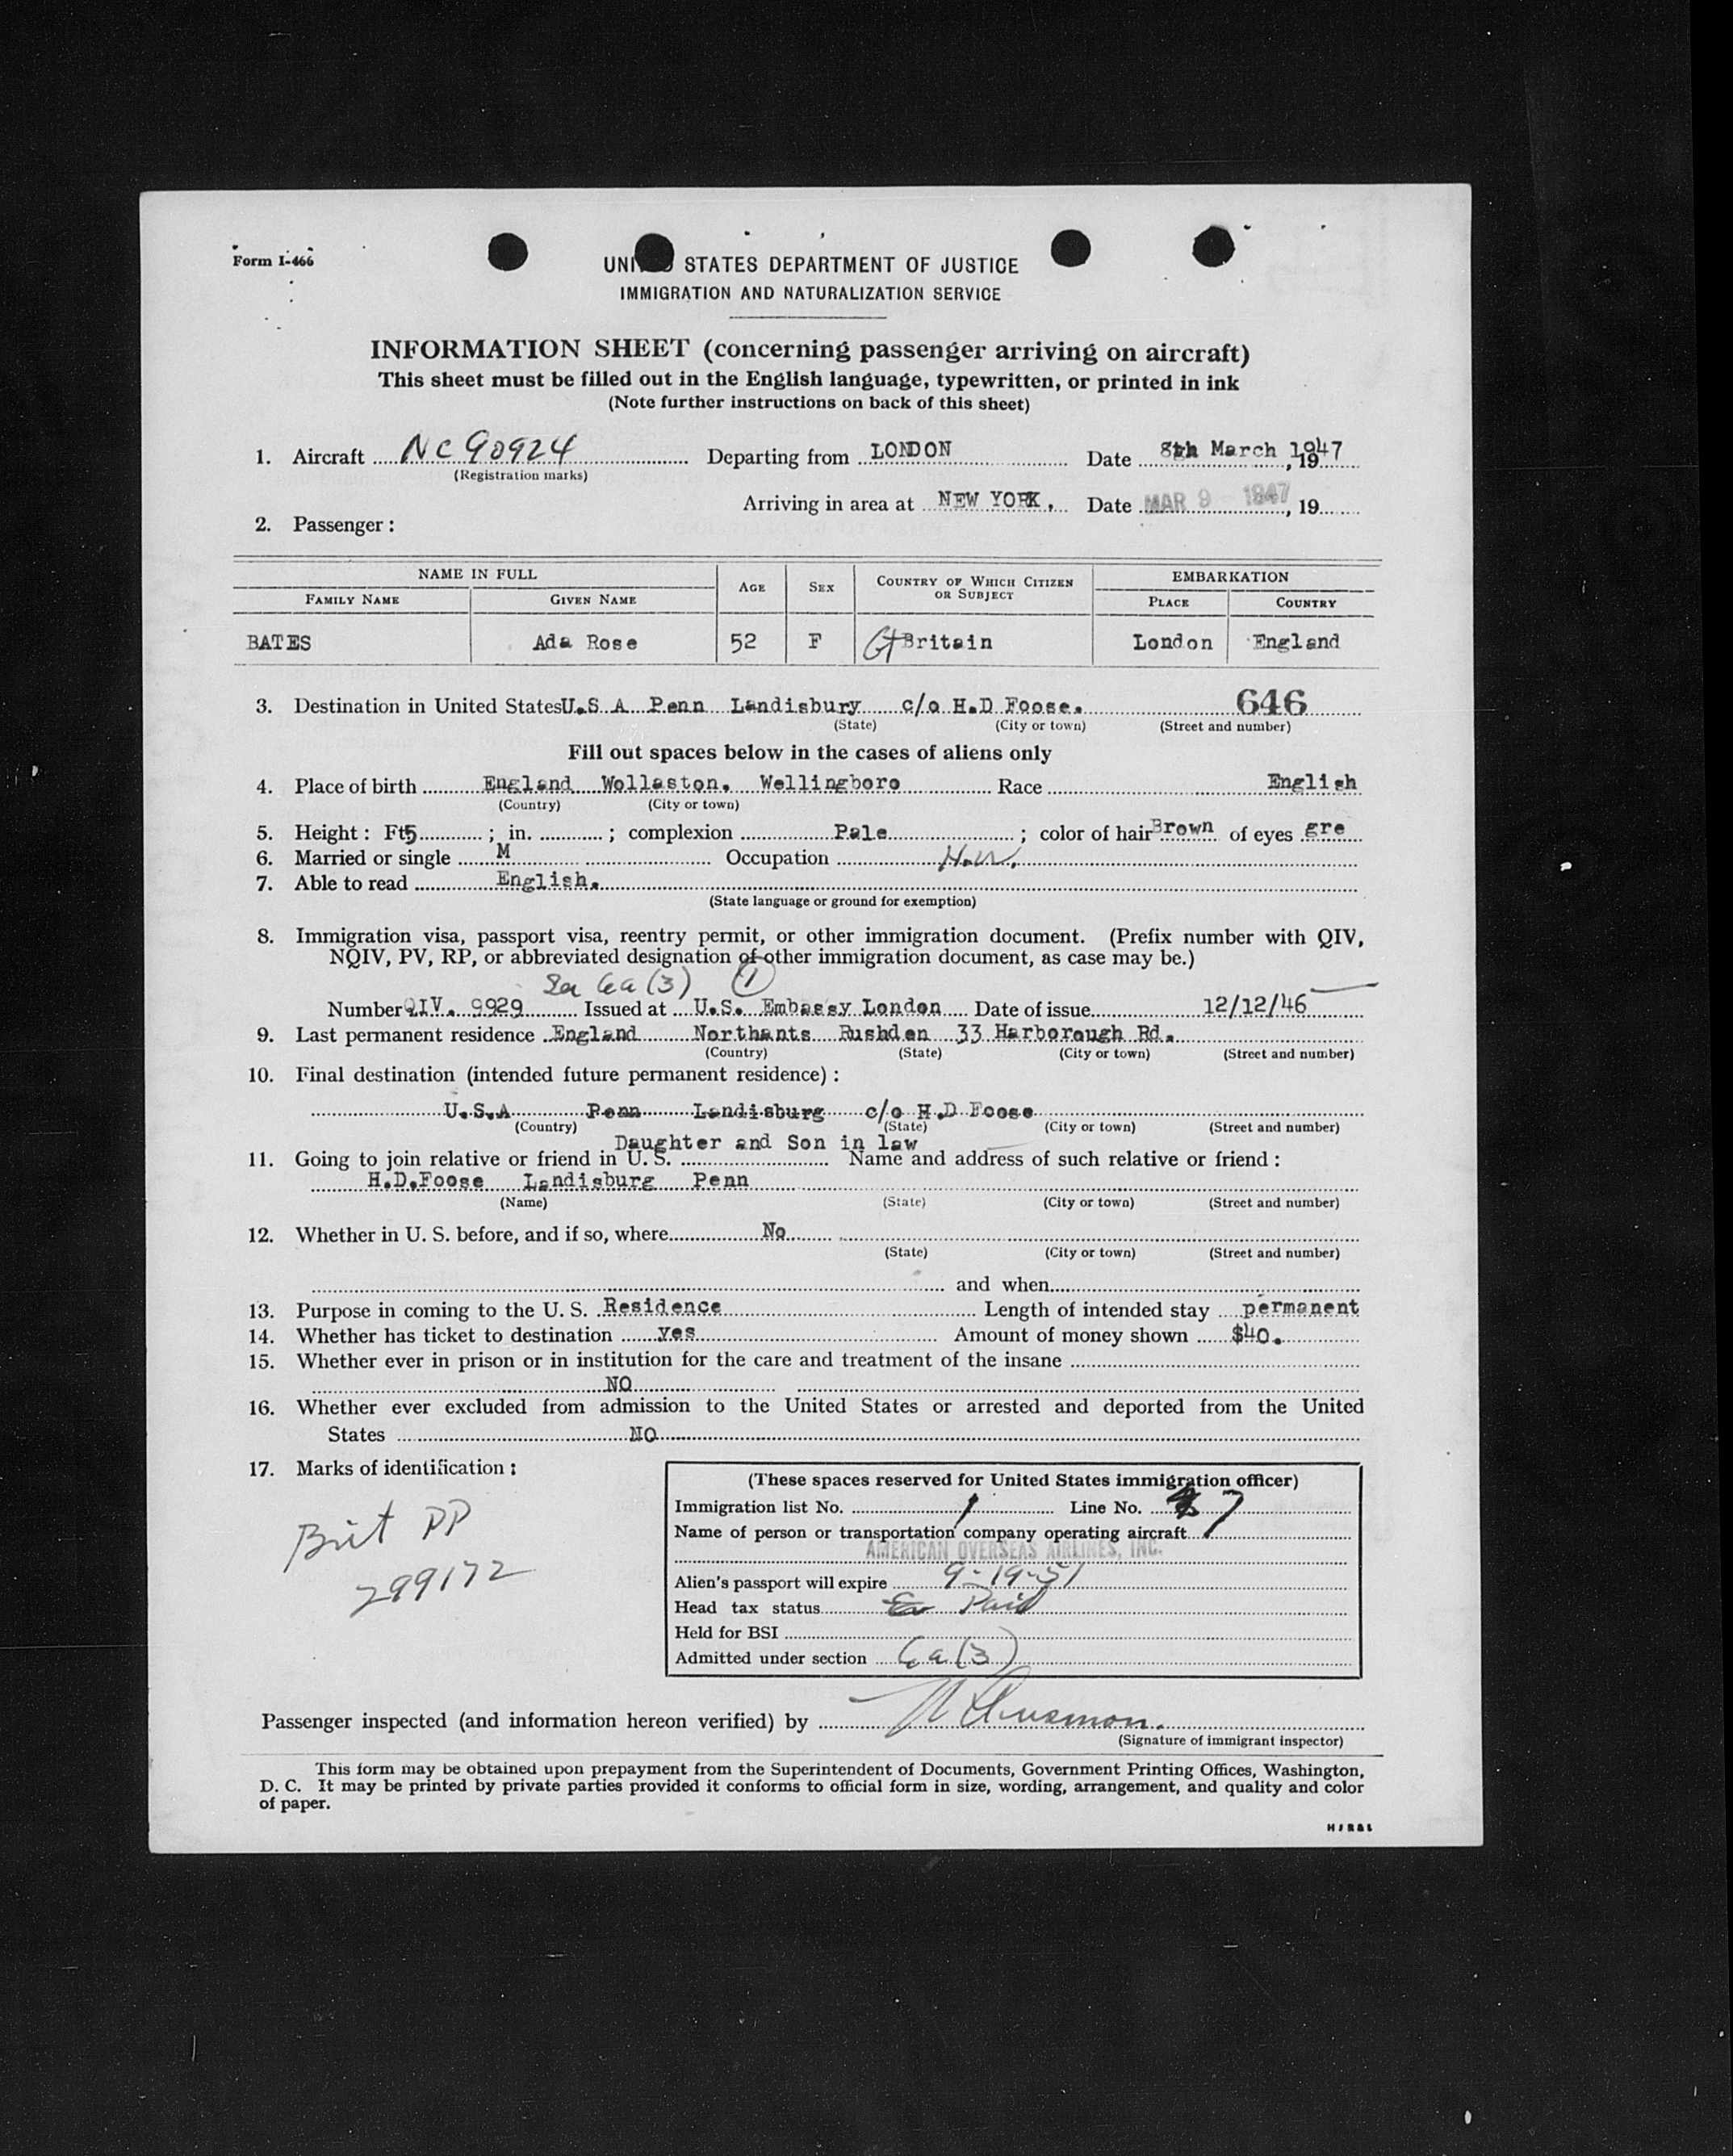 Form I-466
UNITED STATES DEPARTMENT OF JUSTICE
IMMIGRATION AND NATURALIZATION SERVICE
INFORMATION SHEET (concerning passenger arriving on aircraft)
This sheet must be filled out in the English language, typewritten, or printed in ink
(Note further instructions on back of this sheet)
1. Aircraft NC 90924 Departing from LONDON Date 8th March 1947, 19
(Registration marks)
Arriving in area at NEW YORK. Date MAR 9 1947, 19
2. Passenger:
NAME IN FULL AGE SEX COUNTRY OF WHICH CITIZEN OR SUBJECT EMBARKATION
FAMILY NAME GIVEN NAME PLACE COUNTRY
BATES Ada Rose 52 F Gt Britain London England
3. Destination in United States U.S A Penn Landisbury c/o H.D Foose. 646
(State) (City or town) (Street and number)
Fill out spaces below in the cases of aliens only
4. Place of birth England Wollaston. Wellingboro Race English
(Country) (City or town)
5. Height: Ft 5 ; in. ; complexion Pale ; color of hair Brown of eyes gre
6. Married or single M Occupation H.W.
7. Able to read English.
(State language or ground for exemption)
8. Immigration visa, passport visa, reentry permit, or other immigration document. (Prefix number with QIV,
NQIV, PV, RP, or abbreviated designation of other immigration document, as case may be.)
6a (3) 1
Number QIV. 9929 Issued at U.S. Embassy London Date of issue 12/12/46
9. Last permanent residence England Northants Rushden 33 Harborough Rd.
(Country) (State) (City or town) (Street and number)
10. Final destination (intended future permanent residence):
U.S.A Penn Landisburg c/o H.D Foose
(Country) (State) (City or town) (Street and number)
Daughter and Son in law
11. Going to join relative or friend in U. S. Name and address of such relative or friend:
H.D.Foose Landisburg Penn
(Name) (State) (City or town) (Street and number)
12. Whether in U. S. before, and if so, where No
(State) (City or town) (Street and number)
and when
13. Purpose in coming to the U. S. Residence Length of intended stay permanent
14. Whether has ticket to destination yes Amount of money shown $40.
15. Whether ever in prison or in institution for the care and treatment of the insane
NO
16. Whether ever excluded from admission to the United States or arrested and deported from the United
States NO
17. Marks of identification:
Brit PP
299172
(These spaces reserved for United States immigration officer)
Immigration list No. 1 Line No. 7
Name of person or transportation company operating aircraft
AMERICAN OVERSEAS AIRLINES, INC.
Alien's passport will expire 9-19-51
Head tax status Paid
Held for BSI
Admitted under section 6a (3)
Passenger inspected (and information hereon verified) by
(Signature of immigrant inspector)
This form may be obtained upon prepayment from the Superintendent of Documents, Government Printing Offices, Washington,
D. C. It may be printed by private parties provided it conforms to official form in size, wording, arrangement, and quality and color
of paper.